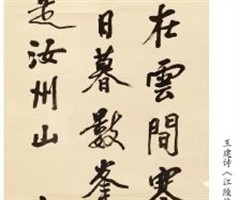 王建诗《江陵
在雲間寒
日暮數峯
是汝州山